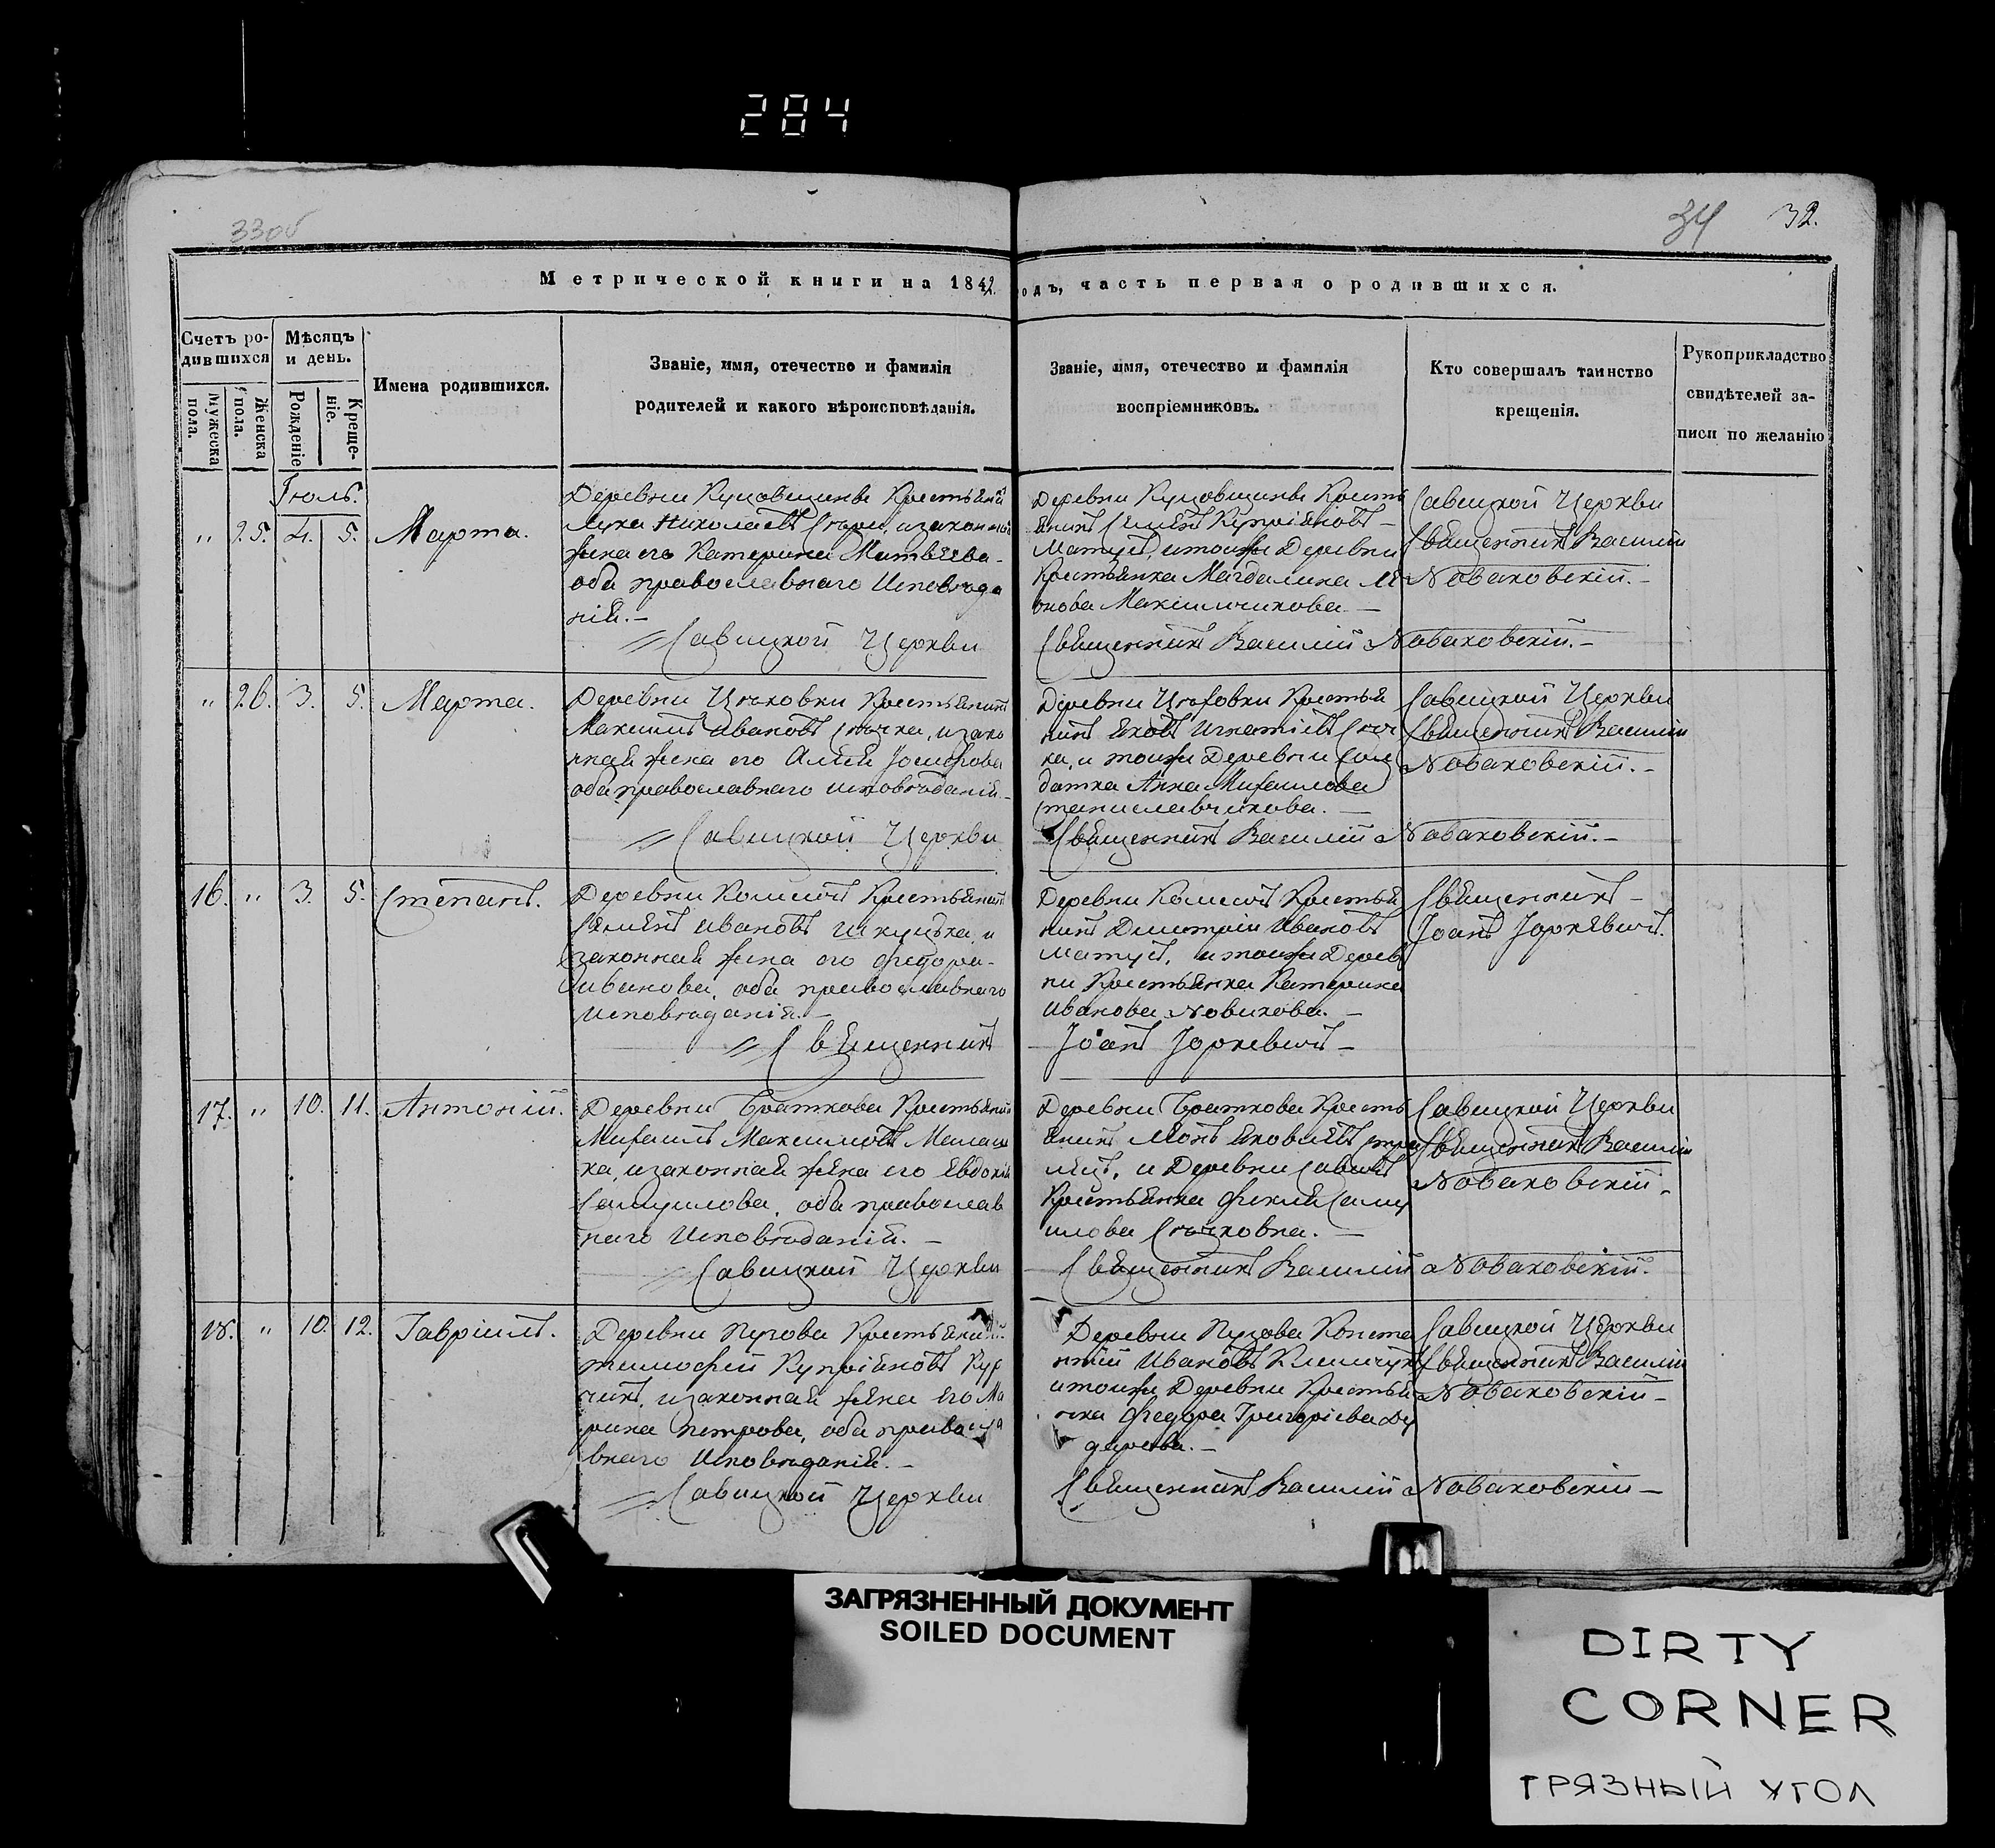 284
33об
34 32.
Метрической книги на 1842 одъ, часть первая о родившихся.
Счетъ ро-
дившихся
Мужеска
пола.
Женска
пола.
Мѣсяцъ
и день.
Рожденіе
Креще-
ніе.
Имена родившихся.
Званіе, имя, отечество и фамилія
родителей и какого вѣроисповѣданія.
Званіе, имя, отечество и фамилія
воспріемниковъ.
Кто совершалъ таинство
крещенія.
Рукоприкладство
свидѣтелей за-
писи по желанію
Іюль.
" 25. 4. 5. Марта.
Деревни
Лука Николаевъ
жена его Катерина Матвѣева
оба православнаго Исповѣда
нія.-
Савицкой Церкви
Деревни
янинъ Семенъ Купріяновъ -
Матусъ, и тойже Деревни
Крестьянка Магдалина Ле
онова
Священникъ Василій Новаковскій.-
Савицкой Церкви
Священникъ Василій
Новаковскій.-
" 26. 3. 5. Марта.
Деревни Крестьянинъ
Максимъ Ивановъ
жена его
оба православнаго исповѣданія-
Савицкой Церкви
Деревни Крестья
нинъ Яковъ Игнатіевъ
ка, и тойже Деревни Сол
датка Анна Михаилова
Станиславчикова. -
Священникъ Василій Новаковскій.-
Савицкой Церкви
Священникъ Василій
Новаковскій.-
16. " 3. 5. Степанъ.
Деревни Крестьянинъ
Семенъ Ивановъ
законная жена его Федора-
Иванова, оба православнаго
Исповѣданія.-
Священникъ
Деревни Крестья
нинъ Дмитрій Ивановъ
Матусъ, и тойже Дерев
ни Крестьянка Катерина
Иванова Новикова. -
Іоанъ Юркевичъ -
Священникъ -
Іоанъ Юркевичъ.
17. " 10. 11. Антоній.
Деревни Браткова Крестьянин
Михаилъ Максимовъ
ка, и законная жена его Евдокія
Самуилова, оба православ
наго Исповѣданія. -
Савицкой Церкви
Деревни Браткова Кресть
янинъ Леонъ Яковлевъ
и Деревни Савичъ
Крестьянка Фекла Саму
илова
Священникъ Василій Новаковскій.
Савицкой Церкви
Священникъ Василій
Новаковскій.
18. " 10. 12. Гавріилъ.
Деревни Пузова
Тимофей Купріяновъ Кур
чикъ, и законная жена его Ма
рина Петрова, оба правосла
внаго Исповѣданія.-
Савицкой Церкви
Деревни Пузова
Ивановъ
и тойже Деревни Крестья
нка Федора Григоріева
Священникъ Василій Новаковскій -
Савицкой Церкви
Священникъ Василій
Новаковскій -
ЗАГРЯЗНЕННЫЙ ДОКУМЕНТ
SOILED DOCUMENT
DIRTY
CORNER
ГРЯЗНЫЙ УГОЛ